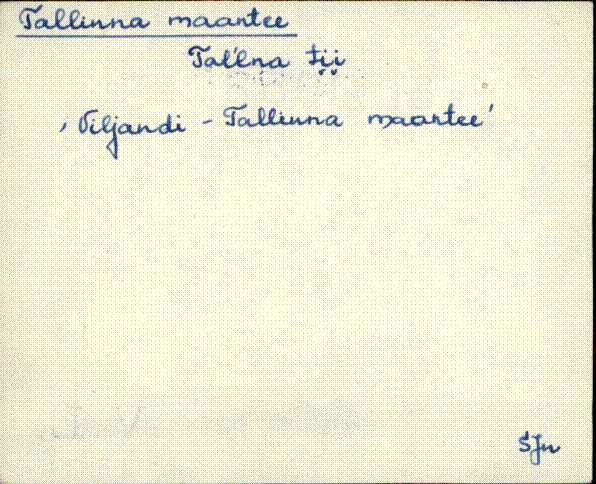 Tallinna maantee
Tal'lna tị̈ị̈
, Viljandi - Tallinna maantee'
SJn